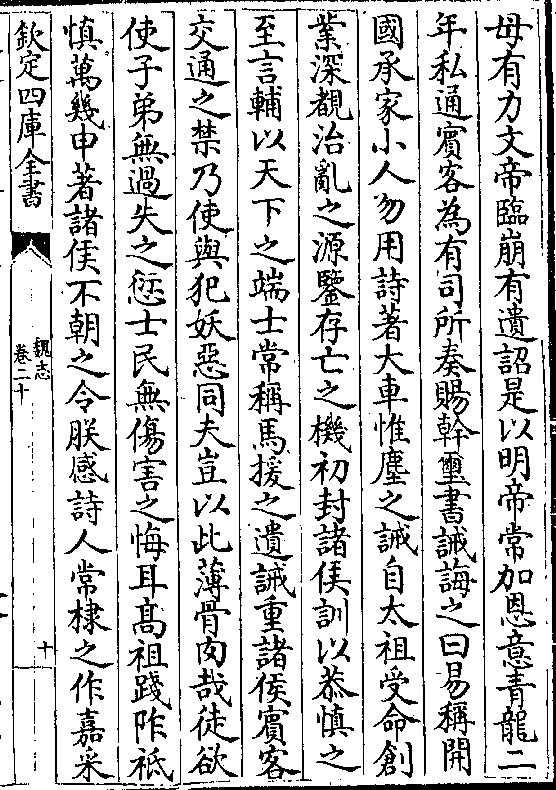 毋有力文帝臨崩有遺詔是以明帝常加恩意青龍二
年私通賓客為有司所奏賜幹璽書誡誨之曰易稱開
國承家小人勿用詩著大車惟塵之誡自太祖受命創
業深覩治亂之源鑒存亡之機初封諸侯訓以恭慎之
至言輔以天下之端士常稱馬援之遺誡重諸侯賓客
交通之禁乃使與犯妖惡同夫豈以此薄骨肉哉徒欲
使子弟無過失之愆士民無傷害之悔耳髙祖踐阼祗
慎萬幾申著諸侯不朝之令朕感詩人常棣之作嘉采
欽定四庫全書
魏志
卷二十
十